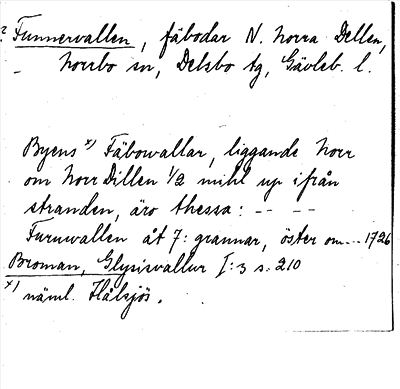 ? Funnervallen, fäbodar N. Norra Dellen,
– Norrbo sn, Delsbo tg, Gävleb. l.
Byens x) Fäbowallar, liggande Norr
om Norr Dillen 1/2 mihl up ifrån
stranden, äro thessa: -- --
Furuwallen åt 7: grannar, öster om --- 1726
Broman, Glysisvallur I:3 s. 210
x) näml. Hålsjös.